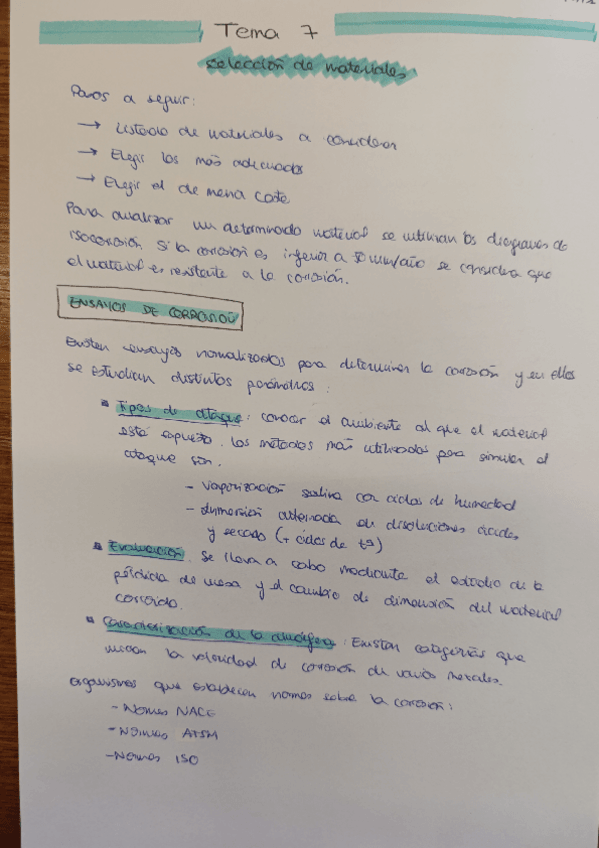 Tema 7
Selección de materiales
Pasos a seguir:
→ Listado de materiales a considerar
→ Elegir los más adecuados
→ Elegir el de menor coste
Para analizar un determinado material se utilizan los diagramas de
isocorrosión. Si la corrosión es inferior a 50 mm/año se considera que
el material es resistente a la corrosión.
ENSAYOS DE CORROSIÓN
Existen ensayos normalizados para determinar la corrosión y en ellos
se estudian distintos parámetros:
Tipos de ataque: conocer el ambiente al que el material
está expuesto. Los métodos más utilizados para simular el
ataque son.
- Vaporización salina con ciclos de humedad
- Inmersión alternada en disoluciones ácidas,
y secado (+ ciclos de tª)
Evaluación. Se lleva a cabo mediante el estudio de la
pérdida de masa y el cambio de dimensión del material
corroído.
Caracterización de la atmósfera: Existen categorías que
la velocidad de corrosión de varios metales.
Organismos que establecen normas sobre la corrosión:
- Normas NACE
- Normas ATSM
- Normas ISO